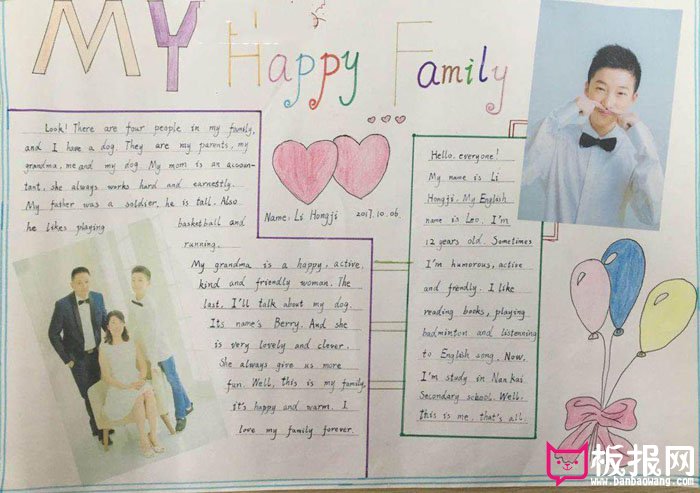 MY Happy Family
Look! There are four people in my family,
and I have a dog. They are my parents, my
grandma, me and my dog. My mom is an accoun-
tant, she always works hard and earnestly.
My father was a soldier, he is tall. Also
he likes playing basketball and
running.
My grandma is a happy, active,
kind and friendly woman. The
last, I'll talk about my dog.
Its name's Berry. And she
is very lovely and clever.
She always give us more
fun. Well, this is my family,
it's happy and warm. I
love my family forever.
Name: Li Hongji 2017.10.06.
Hello, everyone!
My name is Li
Hongji, My English
name is Leo. I'm
12 years old. Sometimes
I'm humorous, active
and frendly. I like
reading books, playing
badminton and listenning
to English song. Now,
I'm study in Nan Kai
Secondary school. Well,
this is me, that's all.
板报网
www.banbaowang.com